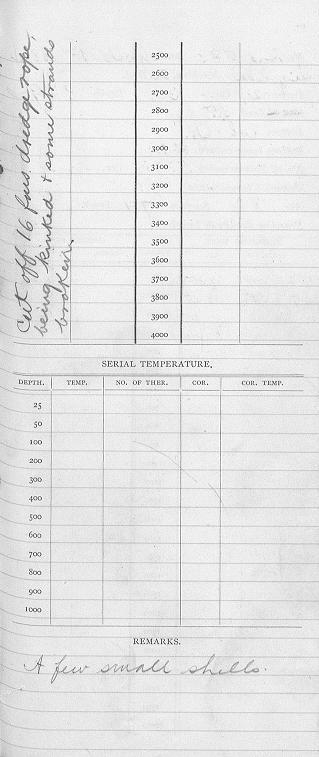 Cut off 16 fms. dredge rope,
being kinked & some strands
broken.
2500
2600
2700
2800
2900
3000
3100
3200
3300
3400
3500
3600
3700
3800
3900
4000
SERIAL TEMPERATURE.
DEPTH. TEMP. NO. OF THER. COR. COR. TEMP.
25
50
100
200
300
400
500
600
700
800
900
1000
REMARKS.
A few small shells.